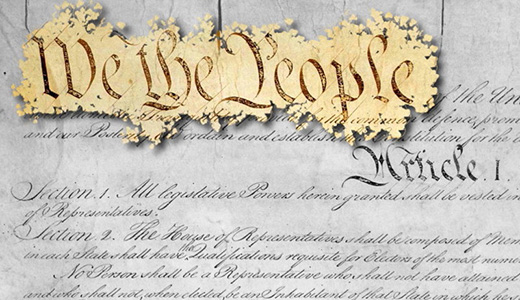 We the People
of the Uni
common defence, prom
and our Poste ordain and establish stitution for the
Article. I.
Section. 1. All legislative Powers herein granted shall be vested in
of Representatives.
Section. 2. The House of Representatives shall be composed of Mem
in each State shall have the Qualifications requisite for Electors of the most nume
No Person shall be a Representative who shall not have attained
and who shall not, when elected, be an Inhabitant of that State in which he